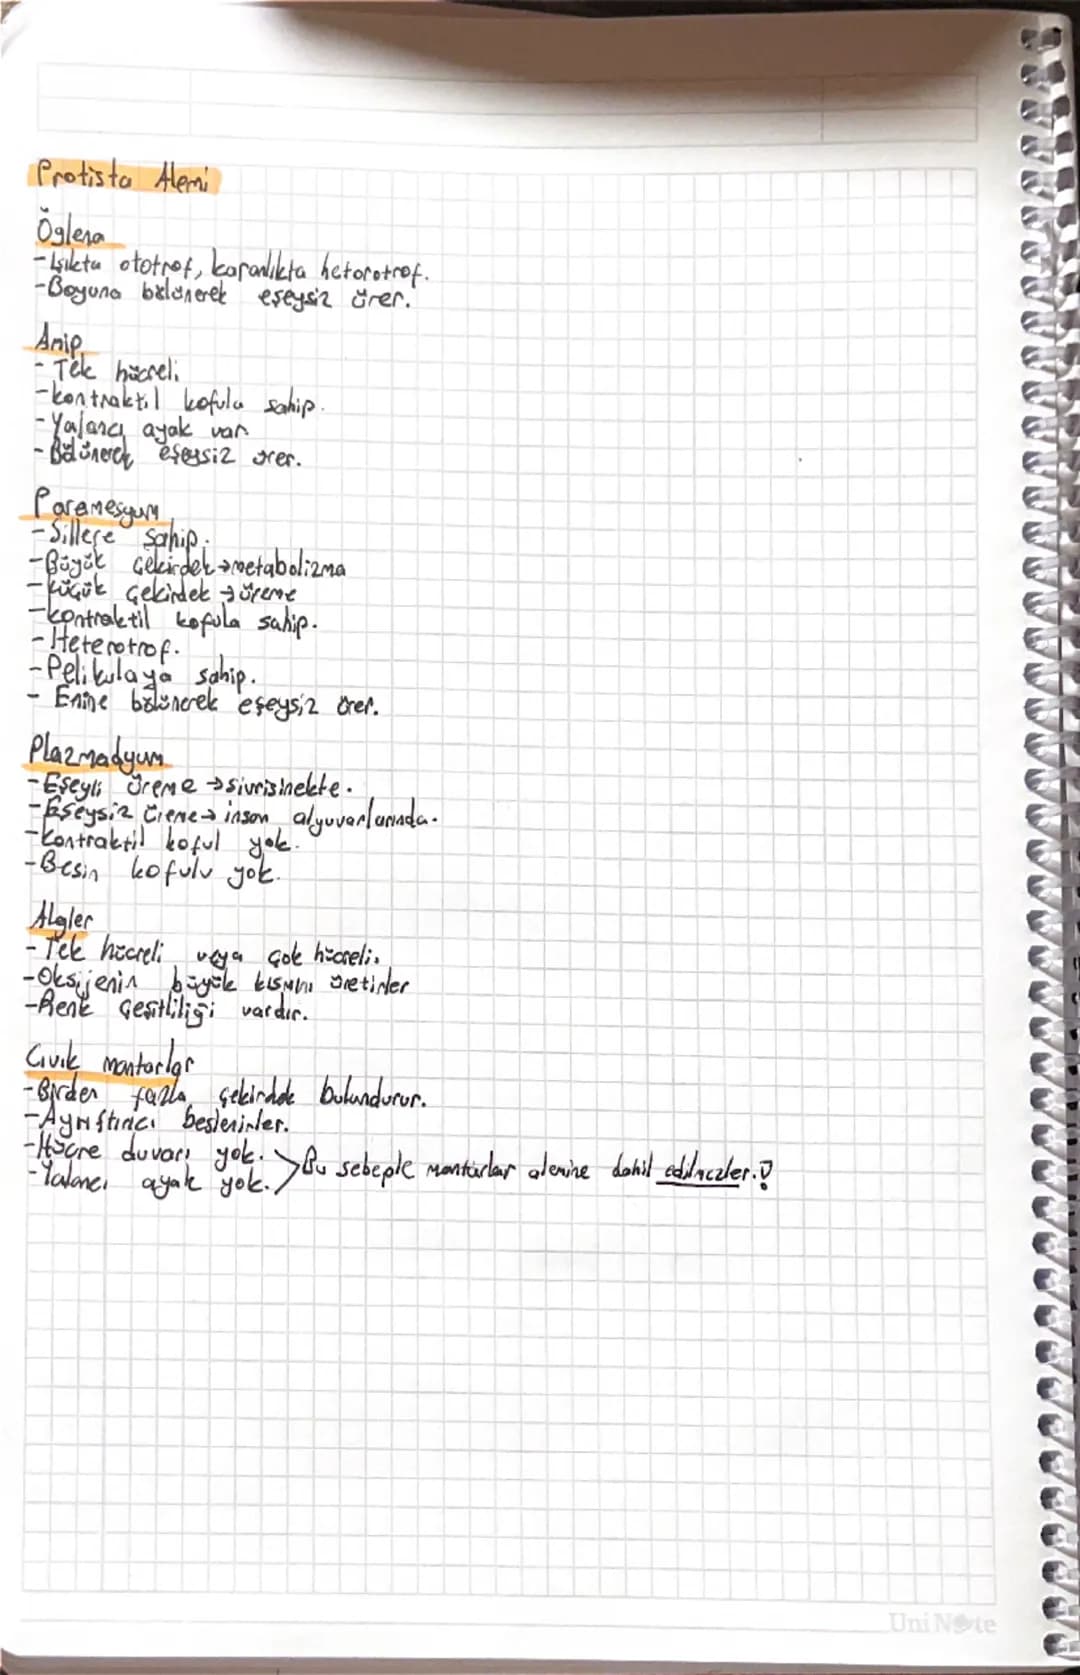 Protista Alemi
Öglena
-Işıkta ototrof, karanlıkta hetorotrof.
-Boyuna bölünerek eşeysiz ürer.
Amip
- Tek hücreli
-kontraktil kofula sahip.
-Yalancı ayak var.
-Bölünerek eşeysiz ürer.
Paramesyum
-Sillere sahip.
-Büyük çekirdek→metabolizma
-küçük çekirdek→üreme
-kontraktil kofula sahip.
-Heterotrof.
-Pelikulaya sahip.
- Enine bölünerek eşeysiz ürer.
Plazmadyum
-Eşeyli üreme→sivrisinekte.
-Eşeysiz üreme→insan alyuvarlarında.
-Kontraktil koful yok.
-Besin kofulu yok.
Algler
-Tek hücreli veya çok hücreli.
-Oksijenin büyük kısmını üretirler
-Renk çeşitliliği vardır.
Cıvık mantarlar
-Birden fazla çekirdek bulundurur.
-Ayrıştırıcı beslenirler.
-Hücre duvarı yok.
-Yalancı ayak yok. > Bu sebeple mantarlar alemine dahil edilmezler.!
UniNote